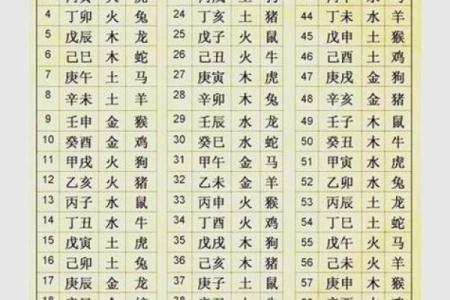 4 丁卯 火 兔 24 丁亥 火 猪 44 丁未 水 羊
5 戊辰 木 龙 25 戊子 火 鼠 45 戊申 土 猴
6 己巳 木 蛇 26 己丑 火 牛 46 己酉 土 鸡
7 庚午 土 马 27 庚寅 木 虎 47 庚戌 金 狗
8 辛未 土 羊 28 辛卯 木 兔 48 辛亥 金 猪
9 壬申 金 猴 29 壬辰 水 龙 49 壬子 木 鼠
10 癸酉 金 鸡 30 癸巳 水 蛇 50 癸丑 木 牛
11 甲戌 火 狗 31 甲午 金 马 51 甲寅 水 虎
12 乙亥 火 猪 32 乙未 金 羊 52 乙卯 水 兔
13 丙子 水 鼠 33 丙申 火 猴 53 丙辰 土 龙
14 丁丑 水 牛 34 丁酉 火 鸡 54 丁巳 土 蛇
15 戊寅 土 虎 35 戊戌 木 狗 55 戊午 火 马
16 己卯 土 兔 36 己亥 木 猪 56 己未 火 羊
17 庚辰 金 龙 37 庚子 土 鼠 57 庚申 木 猴